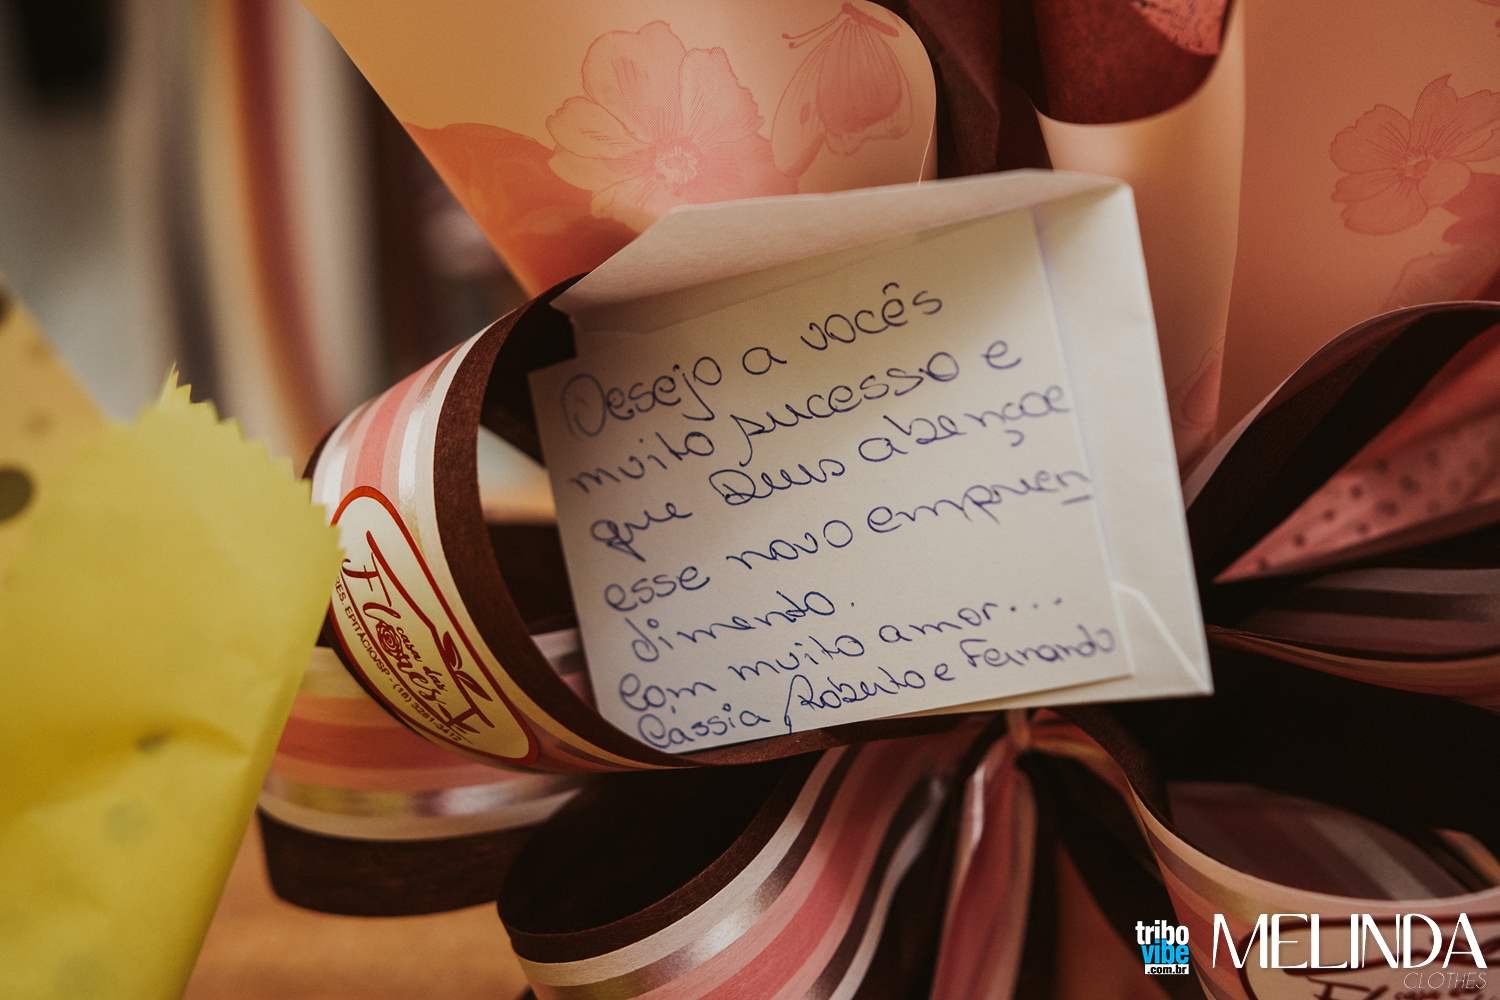 Desejo a vocês
muito sucesso e
que Deus abençoe
esse novo empreen
dimendo.
com muito amor...
Cassia Roberto e Fernando
casa das
Flores
PRES. EPITÁCIO/SP - (18) 3281-3412
tribo
vibe
.com.br
MELINDA
CLOTHES